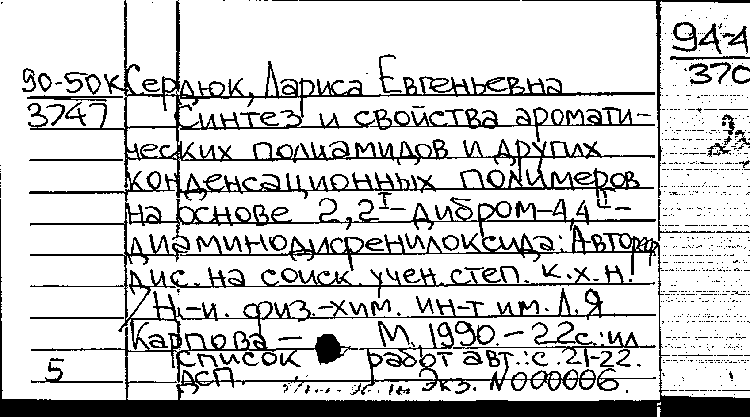 90-50к Сердюк, Лариса Евгеньевна
3747 Синтез и свойства аромати-
ческих полиамидов и других
конденсационных полимеров
на основе 2,2I-дибром-4,4II-
диаминодифенилоксида: Автореф.
дис. на соиск. учен. степ. к.х.н.
/ Н.-и. физ.-хим. ин-т им. Л.Я
Карпова — М., 1990. - 22с.: ил
5 список работ авт.: с. 21-22.
ДСП. Экз. N000006.
94-4
370